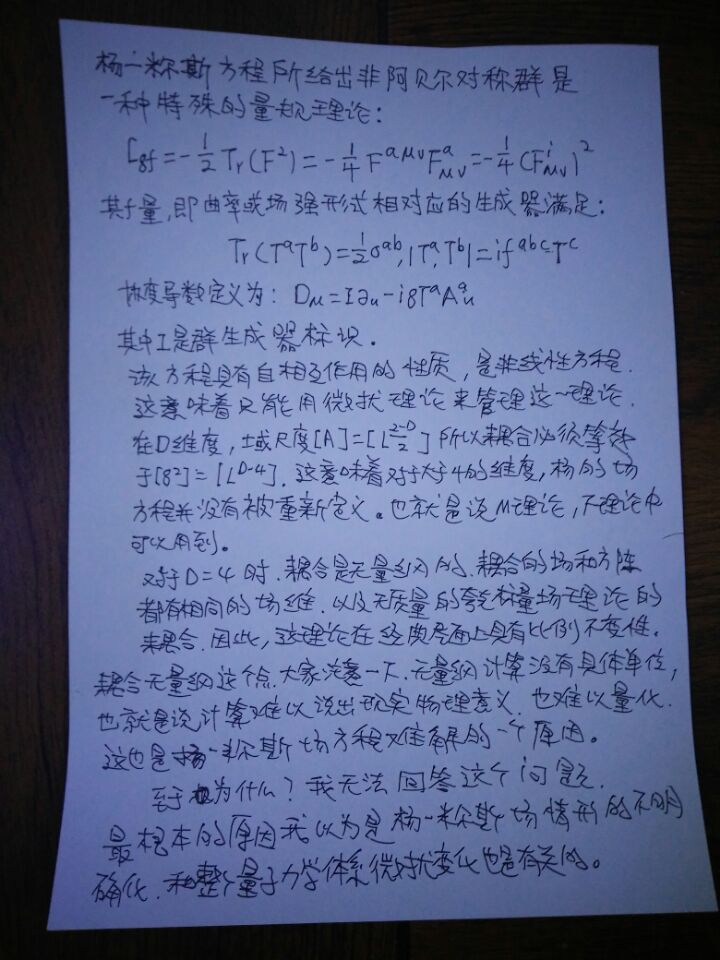 杨一米尔斯方程所给出非阿贝尔对称群是
一种特殊的量规理论:
L_gf = -1/2 Tr(F²) = -1/4 F^{aμν} F^a_{μν} = -1/4 (F^i_{μν})²
其于量,即曲率或场强形式相对应的生成器满足:
Tr(T^a T^b) = 1/2 σ^{ab}, |T^a, T^b| = i f^{abc} T^c
协变导数定义为: D_μ = I∂_u - i g T^a A^a_u
其中I是群生成器标识.
该方程具有自相互作用的性质,是非线性方程.
这意味着只能用微扰理论来管理这一理论.
在D维度,域尺度[A]=[L^{(2-D)/2}]所以耦合必须等
于[g²]=[L^{D-4}].这意味着对于大于4的维度,杨的场
方程并没有被重新定义。也就是说M理论,不理论中
可以用到。
对于D=4时.耦合是无量纲的.耦合的场和方陈
都有相同的场维.以及无质量的夸克标量场理论的
来耦合.因此,这理论在经典层面上具有比例不变性.
耦合无量纲这个点.大家注意一下.无量纲计算没有具体单位,
也就是说计算难以说出现实物理意义.也难以量化.
这也是杨一米尔斯场方程又难解的一个原因。
至于为什么?我无法回答这个问题.
最根本的原因我以为是杨一米尔斯场情形的不明
确化.和整个量子力学体系微扰变化也是有关的。